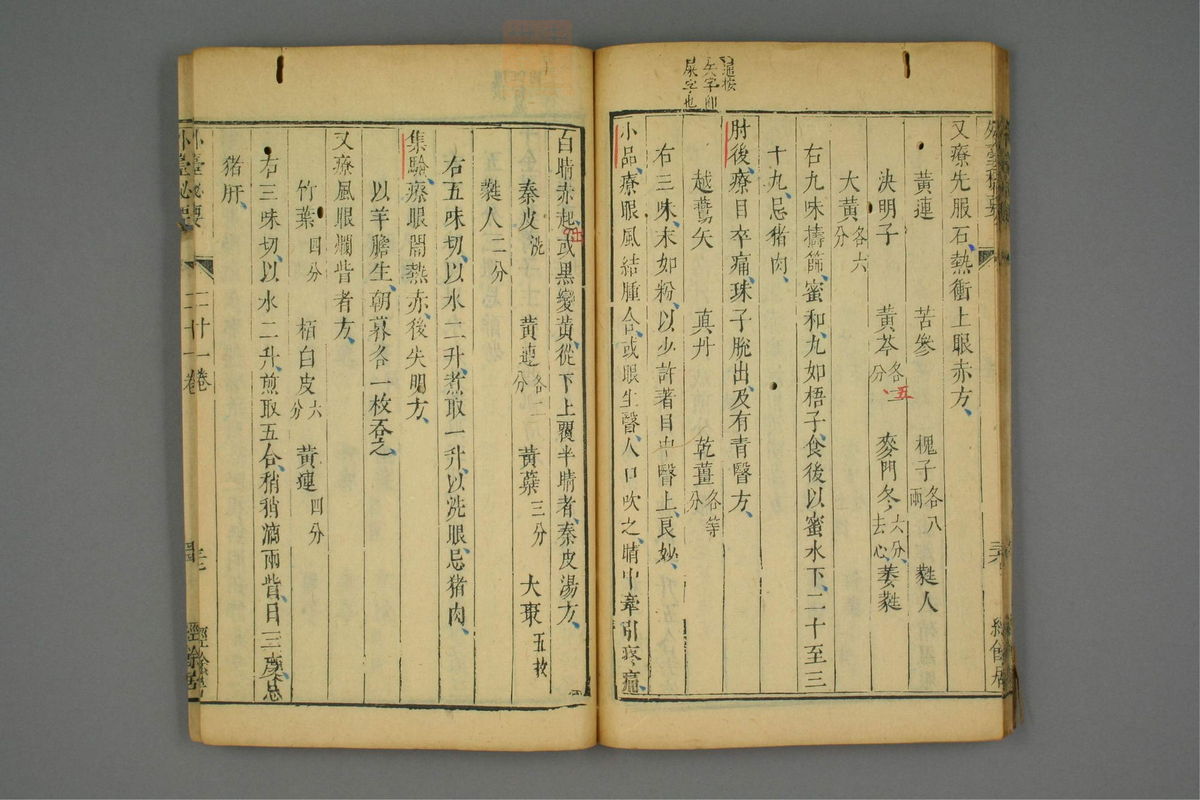 澁按
矢字卽
屎字也
又療先服石熱衝上眼赤方
黃連 苦參 槐子各八兩 蕤人
決明子 黃芩各三分 五 麥門冬六分去心 萎蕤
大黃各六分
右九味擣篩蜜和丸如梧子食後以蜜水下二十至三
十丸忌猪肉
肘後療目卒痛珠子脫出及有青翳方
越鷰矢 真丹 乾薑各等分
右三味末如粉以少許著目中翳上良妙
小品療眼風結腫合或眼生翳人口吹之睛中牽引疼痛
白睛赤起或黑變黃從下上覆半睛者秦皮湯方
秦皮洗 黃連各二分 黃蘗三分 大棗五枚
蕤人二分
右五味切以水二升煮取一升以洗眼忌猪肉
集驗療眼闇熱赤後失明方
以羊膽生朝暮各一枚吞之
又療風眼爛眥者方
竹葉四分 栢白皮六分 黃連四分
右三味切以水二升煎取五合稍稍滴兩眥日三度忌
猪肝
外臺秘要 二十一卷 經餘居